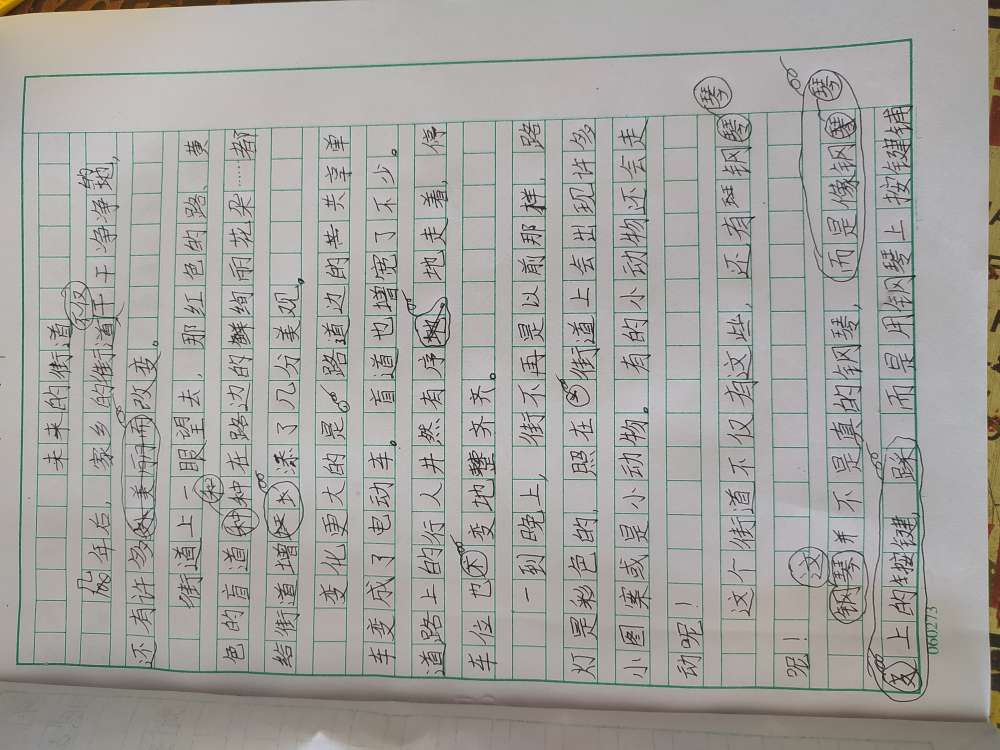 未来的街道
几年后，家乡的街道不仅干干净净的，
还有许多美丽而改变。
街道上一眼望去，那红色的路、黄
色的盲道和种在路边的鲜绚丽花朵……都
给街道增添了几分美观。
变化更大的是路道边的共享单
车变成了电动车。盲道也增宽了不少。
道路上的行人井然有序地走着，停
车位也变地整齐齐。
一到晚上，街不再是以前那样，路
灯是彩色的，照在街道上会出现许多
小图案或是小动物。有的小动物还会走
动呢！
这个街道不仅有这些，还有钢琴
呢！
这钢琴并不是真的钢琴，而是像钢琴
上的按键，踩而是用钢琴上按键铺
060273